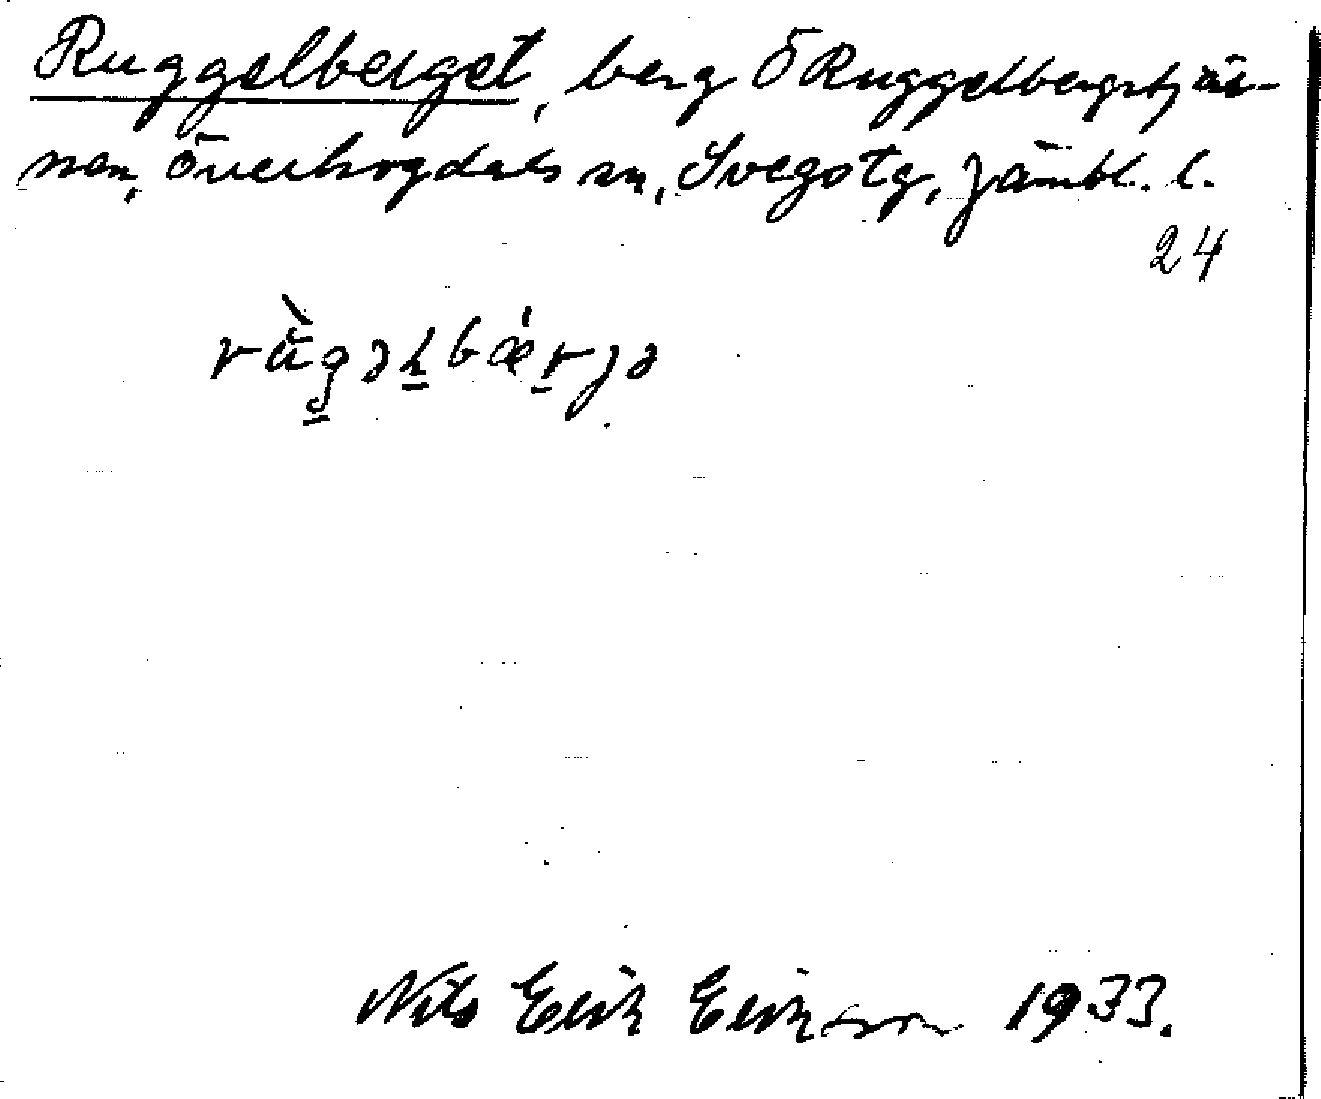 Ruggelberget, berg Ö Ruggelbergstjär-
nen, Överhogdals sn, Svegs tg, Jämtl. l.
24
rùgəɫbǽrjə
Nils Erik Eriksson 1933.